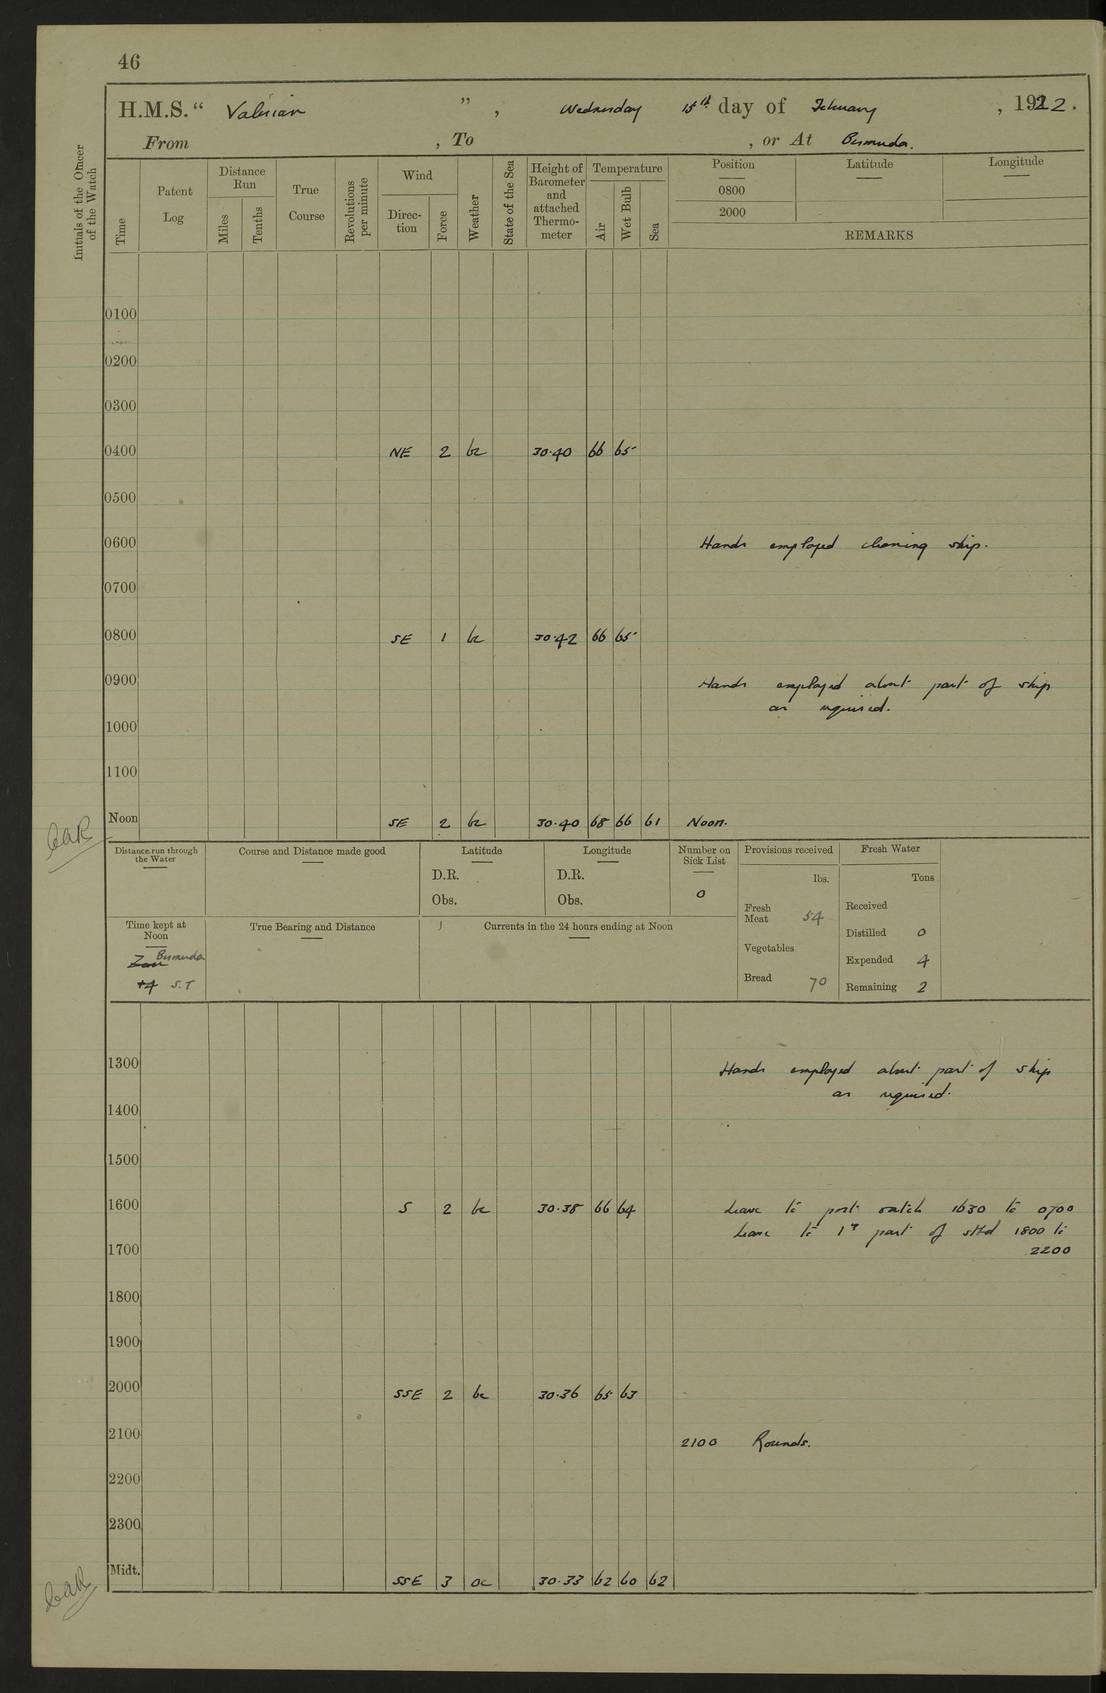 46
H.M.S. " Valerian " , Wednesday 15th day of February , 1922.
From , To , or At Bermuda.
Initials of the Officer of the Watch
Time
Patent Log
Distance Run
Miles
Tenths
True Course
Revolutions per minute
Wind
Direction
Force
Weather
State of the Sea
Height of Barometer and attached Thermometer
Temperature
Air
Wet Bulb
Sea
Position
0800
2000
Latitude
Longitude
REMARKS
0100
0200
0300
0400 NE 2 bc 30.40 66 65
0500
0600 Hands employed cleaning ship.
0700
0800 SE 1 bc 30.42 66 65
0900 Hands employed about part of ship
as required.
1000
1100
Noon SE 2 bc 30.40 68 66 61 Noon.
Distance run through the Water
Course and Distance made good
Latitude
D.R.
Obs.
Longitude
D.R.
Obs.
Number on Sick List
0
Provisions received
lbs.
Fresh Meat 54
Vegetables
Bread 70
Fresh Water
Tons
Received
Distilled 0
Expended 4
Remaining 2
Time kept at Noon
Zone Bermuda
+4 S.T
True Bearing and Distance
Currents in the 24 hours ending at Noon
1300 Hands employed about part of ship
as required.
1400
1500
1600 S 2 bc 30.38 66 64 Leave to port watch 1630 to 0700
Leave to 1st part of stbd 1800 to
1700 2200
1800
1900
2000 SSE 2 bc 30.36 65 63
2100 2100 Rounds.
2200
2300
Midt. SSE 3 oc 30.33 62 60 62